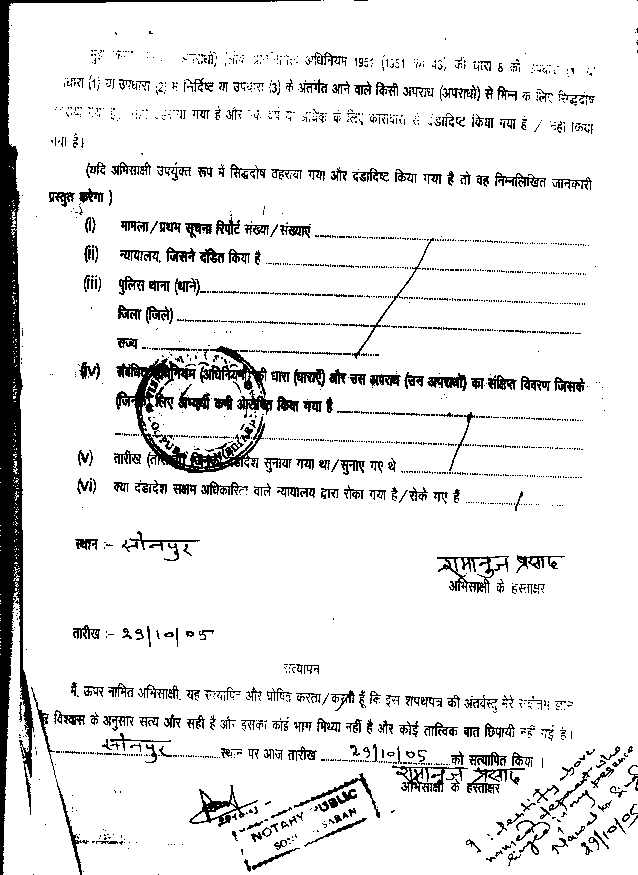 अधिनियम 1951 (1951 का 43) की धारा 8 की उपधारा
धारा (1) या उपधारा (2) में निर्दिष्ट या उपधारा (3) के अंतर्गत आने वाले किसी अपराध (अपराधों) से भिन्न के लिए सिद्धदोष
गया है और एक वर्ष या अधिक के लिए कारावास से दंडादिष्ट किया गया है / नहीं किया
गया है।
(यदि अभिसाक्षी उपर्युक्त रूप में सिद्धदोष ठहराया गया और दंडादिष्ट किया गया है तो वह निम्नलिखित जानकारी
प्रस्तुत करेगा )
(i) मामला/प्रथम सूचना रिपोर्ट संख्या/संख्याएं
(ii) न्यायालय, जिसने दंडित किया है
(iii) पुलिस थाना (थाने)
जिला (जिले)
राज्य
(iv) संबंधित अधिनियम (अधिनियमों) की धारा (धाराएँ) और उस अपराध (उन अपराधों) का संक्षिप्त विवरण जिसके
(जिनके) लिए अभ्यर्थी कभी आरोपित किया गया है
(v) तारीख (तारीखें) दंडादेश सुनाया गया था/सुनाए गए थे
(vi) क्या दंडादेश सक्षम अधिकारिता वाले न्यायालय द्वारा रोका गया है/रोके गए हैं
स्थान :- सोनपुर
रामानुज प्रसाद
अभिसाक्षी के हस्ताक्षर
तारीख :- 29/10/05
सत्यापन
मैं, ऊपर नामित अभिसाक्षी, यह सत्यापित और घोषित करता/करती हूँ कि इस शपथपत्र की अंतर्वस्तु मेरे सर्वोत्तम ज्ञान
विश्वास के अनुसार सत्य और सही है और इसका कोई भाग मिथ्या नहीं है और कोई तात्विक बात छिपायी नहीं गई है।
सोनपुर स्थान पर आज तारीख 29/10/05 को सत्यापित किया ।
रामानुज प्रसाद
अभिसाक्षी के हस्ताक्षर
NOTARY PUBLIC
SARAN
I identify above
named deponent who
signed in my presence
29/10/05